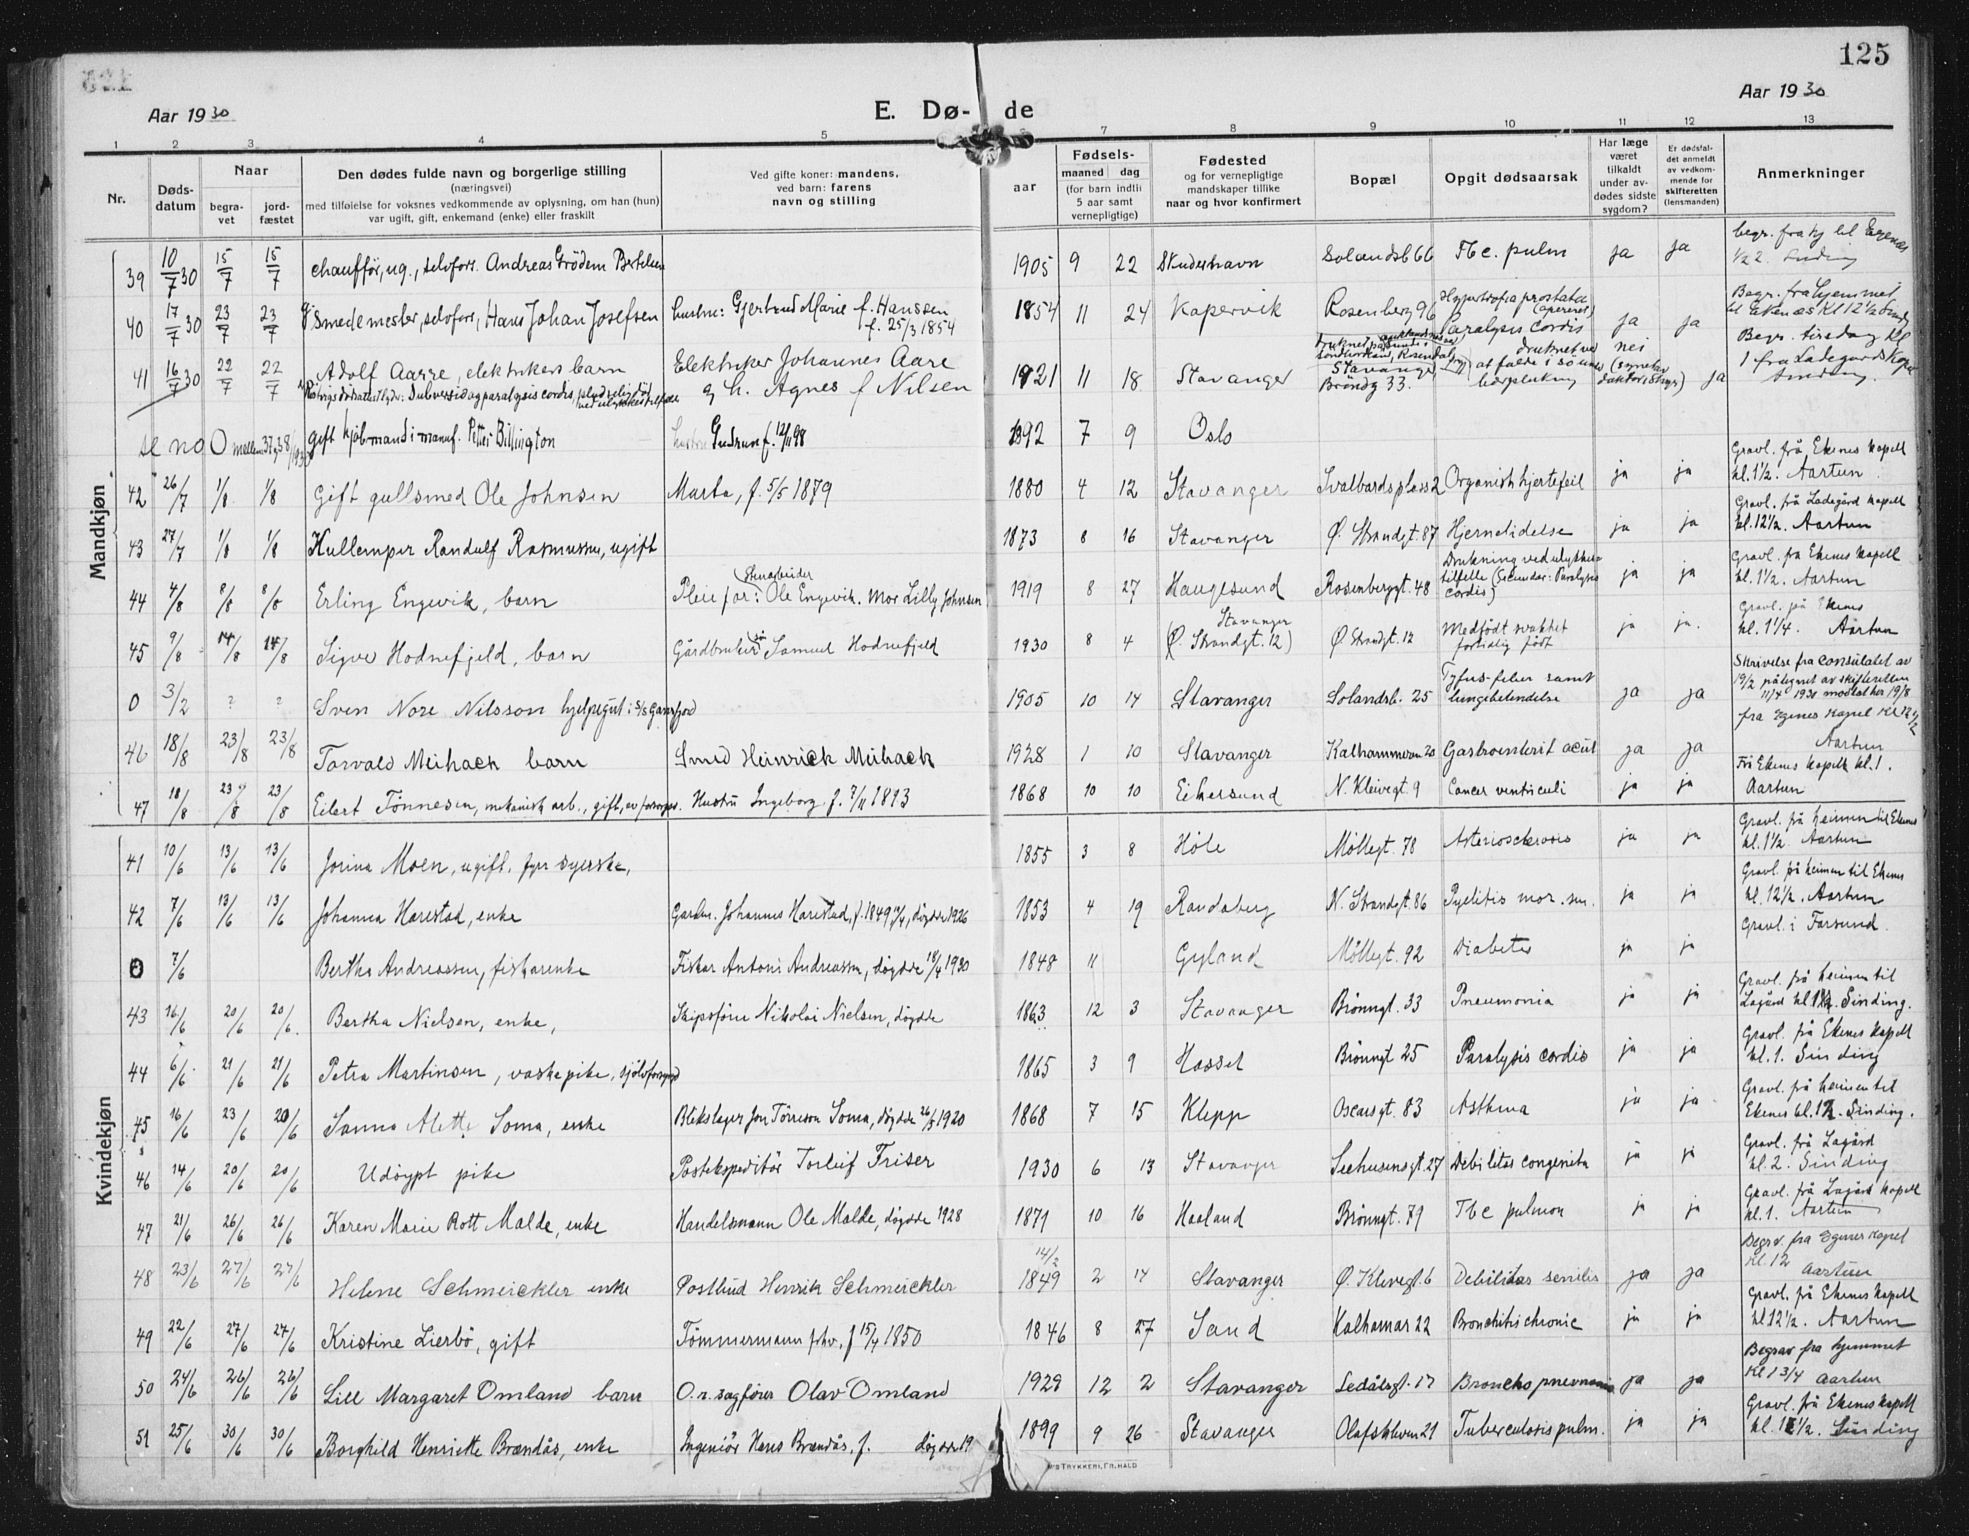 125
Aar 1930
E. Dø- de
Aar 1930
1 2 3 4 5 7 8 9 10 11 12 13
Nr.
Døds-
datum
Naar
begra-
vet
jord-
fæstet
Den dødes fulde navn og borgerlige stilling
(næringsvei)
med tilføielse for voksnes vedkommende av oplysning, om han (hun)
var ugift, gift, enkemand (enke) eller fraskilt
Ved gifte koner: mandens,
ved barn: farens
navn og stilling
aar
Fødsels-
maaned dag
(for barn indtil
5 aar samt
vernepligtige)
Fødested
og for vernepligtige
mandskaper tillike
naar og hvor konfirmert
Bopæl
Opgit dødsaarsak
Har læge
været
tilkaldt
under av-
dødes sidste
sygdom?
Er dødsfal-
det anmeldt
av vedkom-
mende for
skifteretten
(lensmanden)
Anmerkninger
Mandkjøn
39 10/7 30 15/7 15/7 chauffør, ug., selvfors. Andreas Grödem Bertelsen 1905 9 22 Skudeshavn Solandsb 66 Tbc. pulm ja ja
40 17/7 30 23/7 23/7 Smedemester, selvfors., Hans Johan Josefsen hustru: Gjertrud Marie f. Hanssen f. 25/3 1854 1854 11 24 Kopervik Rosenberg 96 Hypertrofia prostata (opereret) Paralysis cordis ja ja Begr. fra hjemmet
41 16/7 30 22/7 22/7 Adolf Aarre, elektrikers barn Elektriker Johannes Aare
& h. Agnes f Nilsen 1921 11 18 Stavanger Stavanger Bröndg 33. nei ja Begr. tirsdag kl 1 fra Ladegaards Kapel Sinding.
se no 0 mellem 37 & 38/1930 gift kjöbmand i manuf. Petter Billington hustru Gudrun f. 12/11 98 1892 7 9 Oslo
42 26/7 1/8 1/8 Gift gullsmed Ole Johnsen Marta, f. 5/5 1879 1880 4 12 Stavanger Svalbardsplass 2 Organisk hjertefeil ja ja Gravl. frå Ekenes kapell kl. 1½. Aartun
43 27/7 1/8 1/8 Randulf Rasmussen, ugift 1873 8 16 Stavanger Ø. Strandgt. 87 Hjernelidelse ja ja Gravl. frå Ladegård kapell kl. 12½. Aartun
44 4/8 8/8 8/8 Erling Engevik, barn Pleiefar: Stenarbeider Ole Engevik. Mor Lilly Johnsen 1919 8 27 Haugesund Rosenberggt. 48 Drukning ved ulykkes-
tilfelle (Secundær: Paralysis cordis) ja ja Gravl. fra Ekenes kapell kl. 1½. Aartun
45 9/8 14/8 14/8 Sigve Hodnefjeld, barn Gårdbruker Samuel Hodnefjeld 1930 8 4 Stavanger (Ø. Strandgt. 12) Ø. Strandgt. 12 Medfödt svakhet fortidlig födt ja ja. Gravl. på Ekenes kl. 1¼. Aartun
0 3/2 ? ? Sven Nore Nilsson hjelpegut i S/S 1905 10 14 Stavanger Solandsb. 25 Tyfus-feber samt lungebetendelse ja ja Skrivelse fra consulatet av 19/2 påtegnet av skifteretten 11/4 1930 mottat her 19/8
46 18/8 23/8 23/8 Torvald Meihack barn Smed Heinrick Meihack 1928 1 10 Stavanger Kalhammeren 20 Gastroenterit acut ja ja fra Egenes Kapel Kl 12½ Aartun
47 18/8 23/8 23/8 Eilert Tönnesen, mekanisk arb., gift, Hustru Ingeborg f. 7/11 1873 1868 10 10 Eikersund N. Kleivegt. 9 Cancer ventriculi ja ja Frå Ekenes kapell kl. 1. Aartun
Kvindekjøn
41 10/6 13/6 13/6 Jorina Moen, ugift, fyrr syerske, 1855 3 8 Höle Möllegt. 78 Arteriosclerosis ja ja Gravl. frå heimen til Ekenes kl. 1½. Aartun
42 7/6 13/6 13/6 Johanna Harestad, enke Gardm. Johannes Harestad, f. 1849, döydde 1926 1853 4 19 Randaberg N. Strandgt. 86 Pyelitis ja ja Gravl. frå heimen til Ekenes kl. 12½. Aartun
0 7/6 Bertha Andreassen, fiskarenke Fisker Antoni Andreassen, döydde 18/4 1930 1848 11 Gyland Möllegt. 92 Diabetes ja ja Gravl. i Farsund.
43 16/6 20/6 20/6 Bertha Nielsen, enke, Skipsförer Nikolai Nielsen, döydde 1863 12 3 Stavanger Brönngt. 33 Pneumonia ja ja Gravl. frå heimen til Lagård kl. 1½. Sinding.
44 6/6 21/6 21/6 Petra Martinsen, vaskepike, sjölvforsyrgd 1865 3 9 Hasset Brönngt 25 Paralysis cordis ja ja Gravl. frå Ekenes kapell kl. 1. Sinding
45 16/6 23/6 20/6 Sanna Alette Soma, enke Blikslager Jon Tönneson Soma, döydde 26/5 1920 1868 7 15 Klepp Oscarsgt. 83 Asthma ja ja Gravl. frå heimen til Ekenes kl. 1½. Sinding.
46 14/6 20/6 20/6 Udöypt pike Postekspeditör Torleif Friser 1930 6 13 Stavanger Seehusensgt. 27 Debilitas congenita ja ja Gravl. frå Lagård kl. 2. Sinding
47 21/6 26/6 26/6 Karen Marie Rott Malde, enke Handelsmann Ole Malde, döydde 1928 1871 10 16 Haaland Brönngt. 79 Tbc pulmon ja ja Gravl. frå Lagård kapell kl. 1. Aartun
48 23/6 27/6 27/6 Helene Schmeickler enke Postbud Henrik Schmeickler 14/2 1849 2 14 Stavanger Ø. Klevegt. 6 Debilitas senilis ja ja Begrav. fra Egenes Kapel Kl. 12 Aartun
49 22/6 27/6 27/6 Kristine Lierbö, gift Tömmermann f 15/4 1850 1846 8 27 Sand Kalhamar 22 Bronchitis chronic ja ja Gravl. frå Ekenes kapell kl 12½. Aartun
50 24/6 26/6 26/6 Lill Margaret Omland barn O.r.sagförer Olav Omland 1929 12 2 Stavanger Ledålsgt. 17 Bronchopnevmonia ja ja Begrav fra hjemmet Kl 1 3/4 Aartun
51 25/6 30/6 30/6 Borghild Henriette Brændås, enke Ingeniör Hans Brændås, f. döydde 19 1899 9 26 Stavanger Olafskleven 21 Tuberculosis pulm. ja ja Gravl. frå Ekenes kapell Sinding
TRYKKERI, FR. HALD